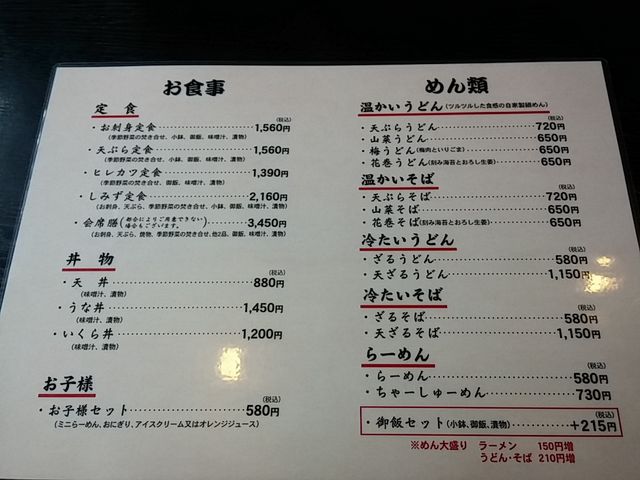 お食事
定食
(税込)
・お刺身定食 1,560円
(季節野菜の焚き合せ、小鉢、御飯、味噌汁、漬物)
・天ぷら定食 1,560円
(季節野菜の焚き合せ、小鉢、御飯、味噌汁、漬物)
・ヒレカツ定食 1,390円
(季節野菜の焚き合せ、御飯、味噌汁、漬物)
・しみず定食 2,160円
(お刺身、天ぷら、季節野菜の焚き合せ、小鉢、御飯、味噌汁、漬物)
・会席膳(都合によりご用意できない場合もございます。) 3,450円
(お刺身、天ぷら、焼物、季節野菜の焚き合せ、他2品、御飯、味噌汁、漬物)
丼物
(税込)
・天丼 880円
(味噌汁、漬物)
・うな丼 1,450円
(味噌汁、漬物)
・いくら丼 1,200円
(味噌汁、漬物)
お子様
(税込)
・お子様セット 580円
(ミニらーめん、おにぎり、アイスクリーム又はオレンジジュース)
めん類
温かいうどん(ツルツルした食感の自家製細めん)
(税込)
・天ぷらうどん 720円
・山菜うどん 650円
・梅うどん(梅肉といりごま) 650円
・花巻うどん(刻み海苔とおろし生姜) 650円
温かいそば
(税込)
・天ぷらそば 720円
・山菜そば 650円
・花巻そば(刻み海苔とおろし生姜) 650円
冷たいうどん
(税込)
・ざるうどん 580円
・天ざるうどん 1,150円
冷たいそば
(税込)
・ざるそば 580円
・天ざるそば 1,150円
らーめん
(税込)
・らーめん 580円
・ちゃーしゅーめん 730円
(税込)
・御飯セット(小鉢、御飯、漬物) +215円
※めん大盛り ラーメン 150円増
うどん・そば 210円増